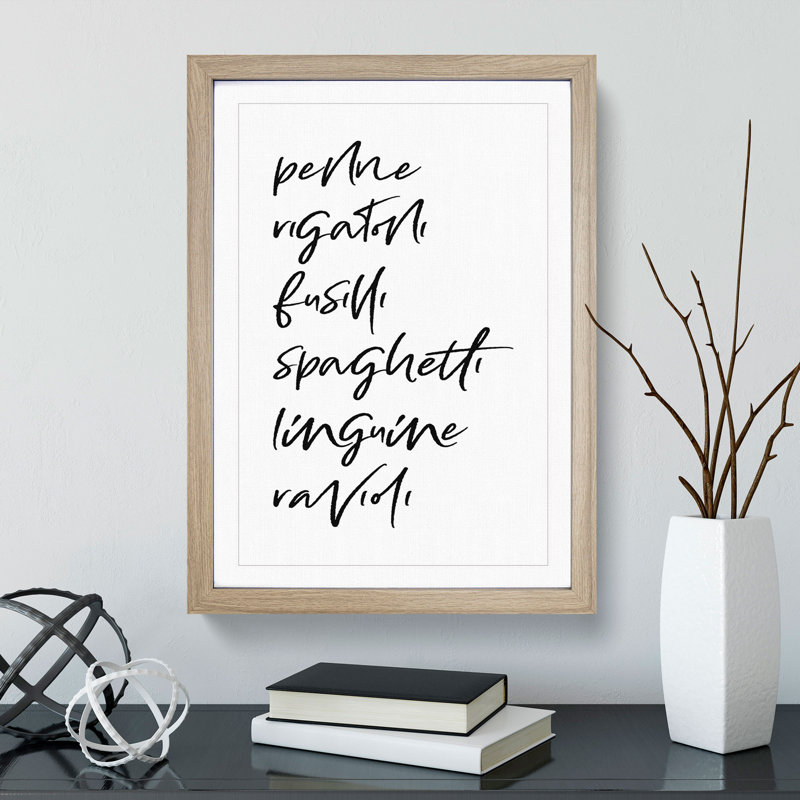 penne
rigatoni
fusilli
spaghetti
linguine
ravioli